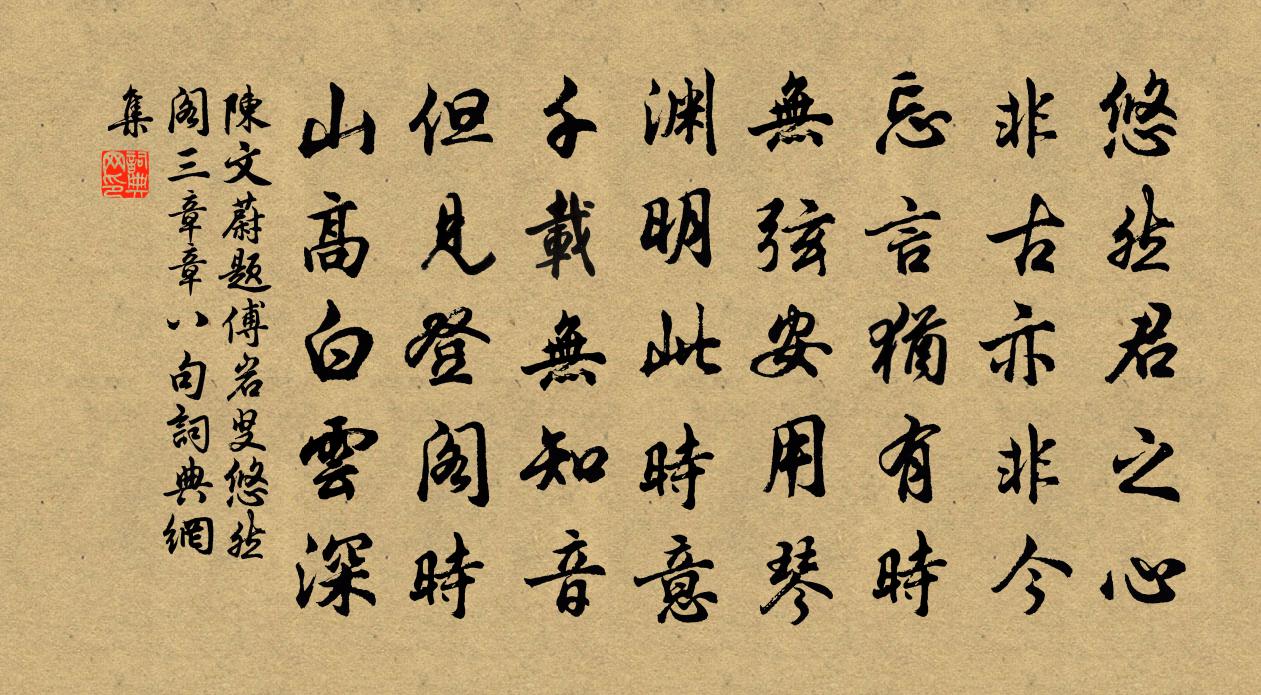 悠然君之心
非古亦非今
忘言犹有時
無弦安用琴
渊明此時意
千載無知音
但見登閣時
山高白雲深
陳文蔚题傅岩叟悠然
閣三章章八句詞典網
集
詞典
网印